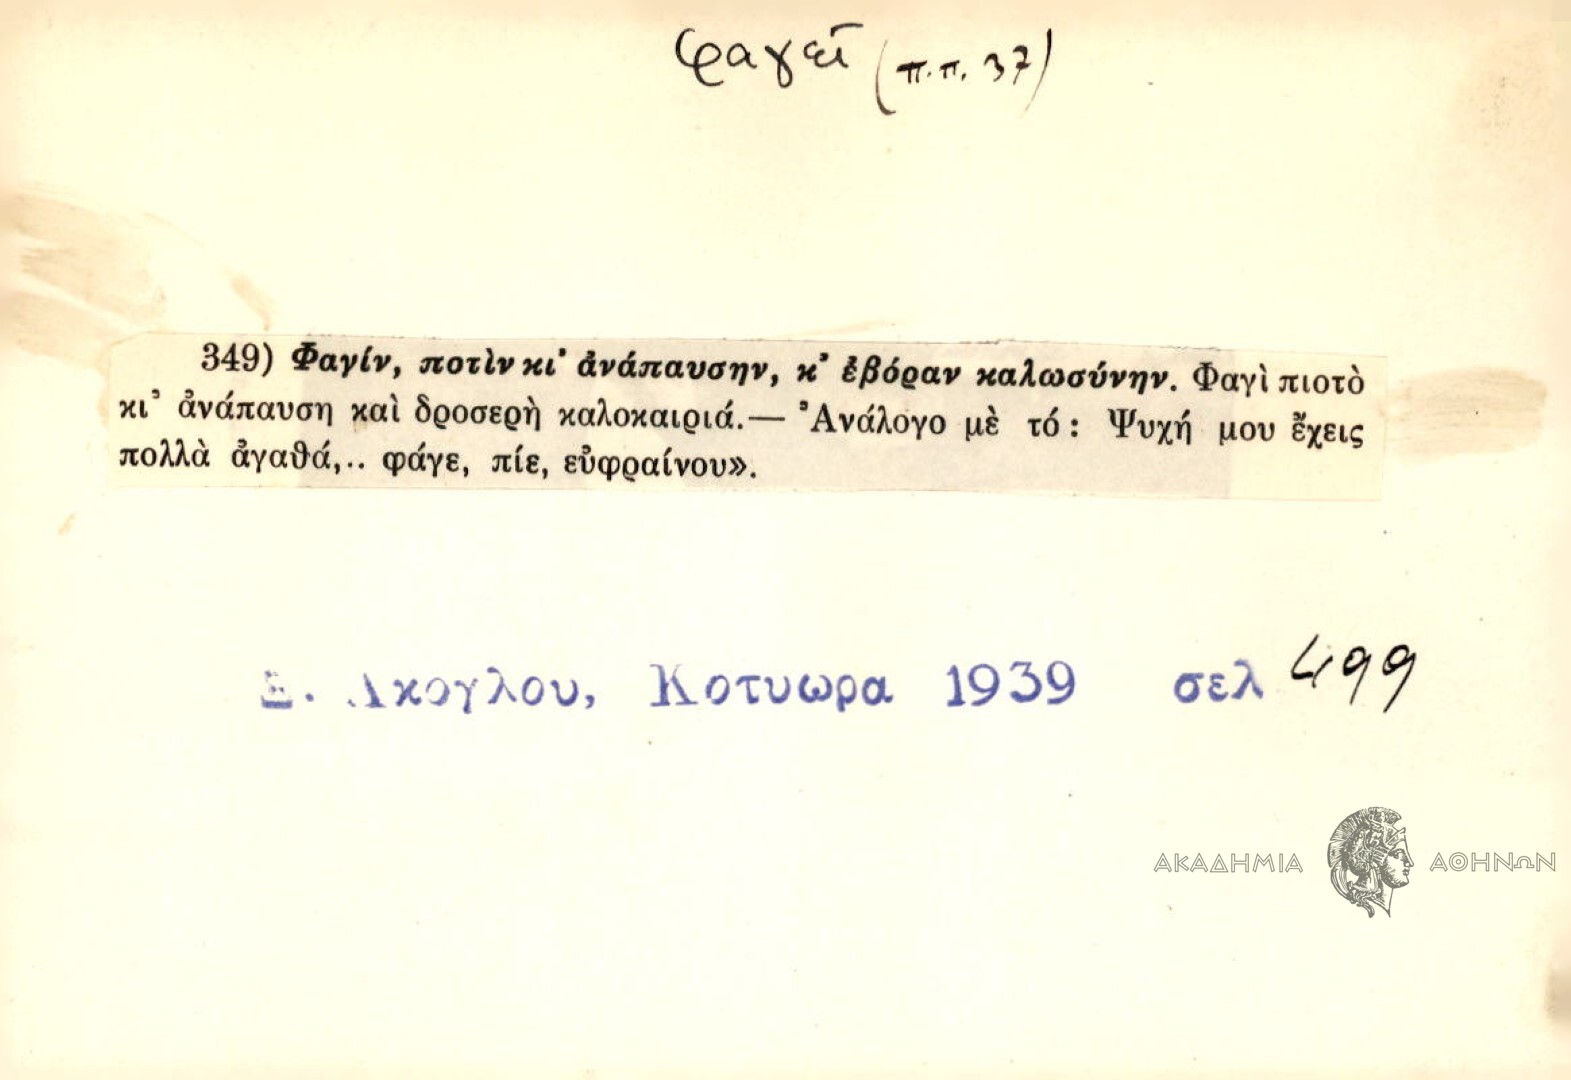 φαγεῖ (π.π. 37)
349) Φαγίν, ποτὶν κι' ἀνάπαυσην, κ' ἐβόραν καλωσύνην. Φαγὶ πιοτὸ
κι' ἀνάπαυση καὶ δροσερὴ καλοκαιριά.— Ἀνάλογο μὲ τό: Ψυχή μου ἔχεις
πολλὰ ἀγαθά,.. φάγε, πίε, εὐφραίνου».
Ξ. Ακογλου, Κοτυωρα 1939 σελ 499
ΑΚΑΔΗΜΙΑ ΑΘΗΝΩΝ